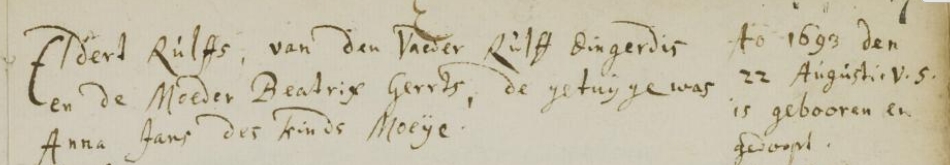 Eldert Rulffs, van den Vaeder Rulff Eingerdis
en de Moeder Beatrix Gerrts, de getuijge was
Anna Jans des kinds Moeije.
Ao 1693 den
22 Augusti v. s.
is gebooren en
gedoopt.